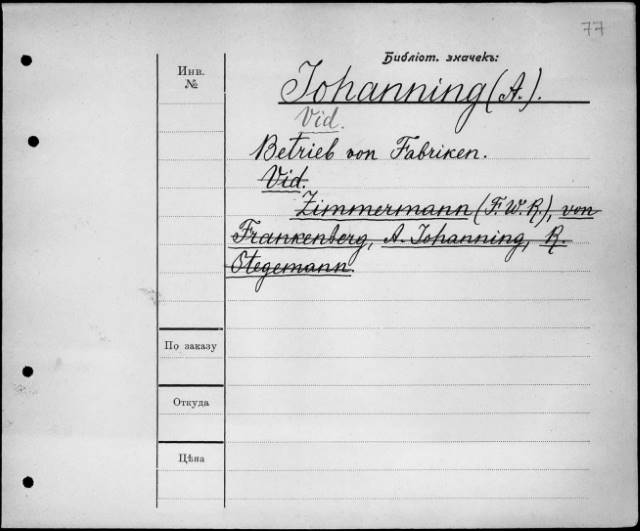 77
Библіот. значекъ:
Инв.
№
Johanning (A.).
Vid.
Betrieb von Fabriken.
Vid.
Zimmermann (F. W. R.), von
Frankenberg, A. Johanning, R.
Stegemann.
По заказу
Откуда
Цѣна